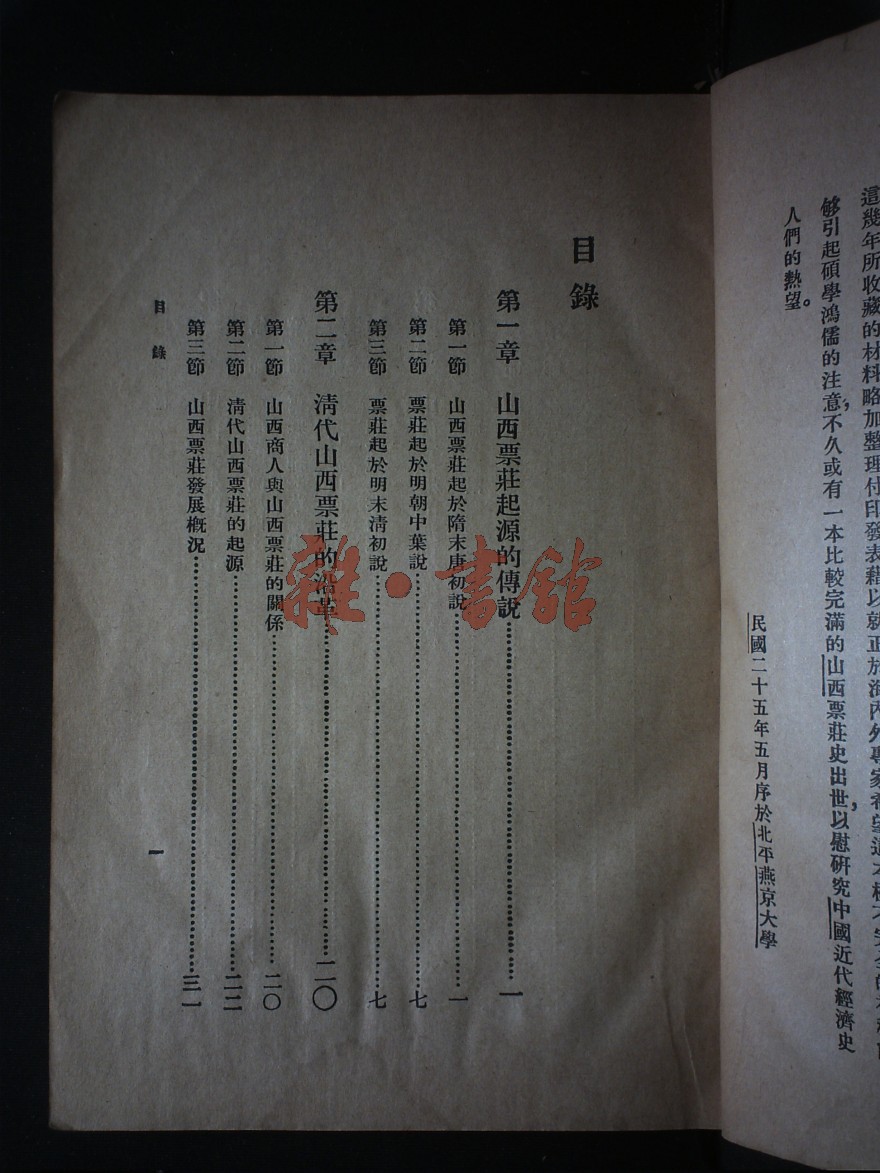 這幾年所收藏的材料略加整理付印發表藉以就正於海內外專家希望這本極不完全的
够引起碩學鴻儒的注意，不久或有一本比較完滿的山西票莊史出世，以慰研究中國近代經濟史
人們的熱望。
民國二十五年五月序於北平燕京大學
目錄
第一章　山西票莊起源的傳說……一
第一節　山西票莊起於隋末唐初說……一
第二節　票莊起於明朝中葉說……七
第三節　票莊起於明末清初說……七
第二章　清代山西票莊的沿革……二〇
第一節　山西商人與山西票莊的關係……二〇
第二節　清代山西票莊的起源……二二
第三節　山西票莊發展概況……三一
目錄
一
雜·書館